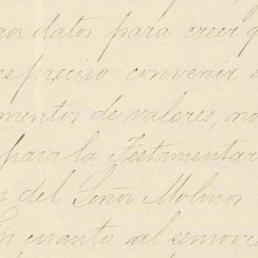 datos para creer q
es preciso convenir
mentos de valores, no
para la Testamentar
del Señor Molinos
En cuanto al semovie